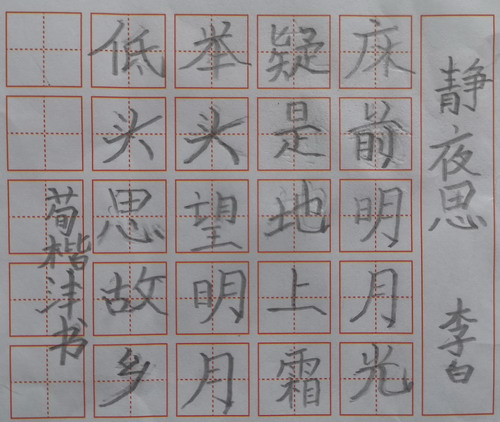 静夜思 李白
床前明月光
疑是地上霜
举头望明月
低头思故乡
荀楷沣书